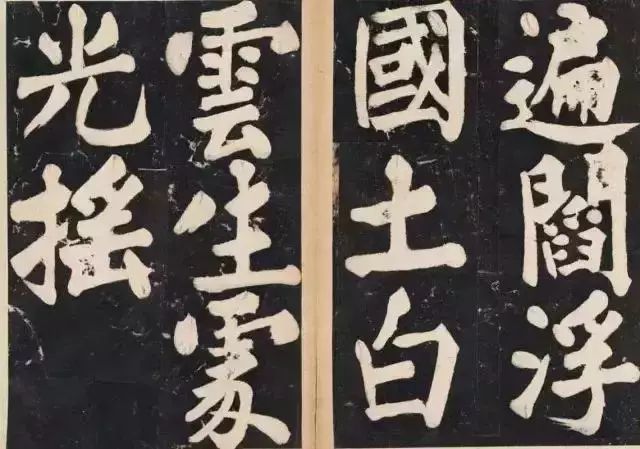 遍閻浮
國土白
雲生處
光揺